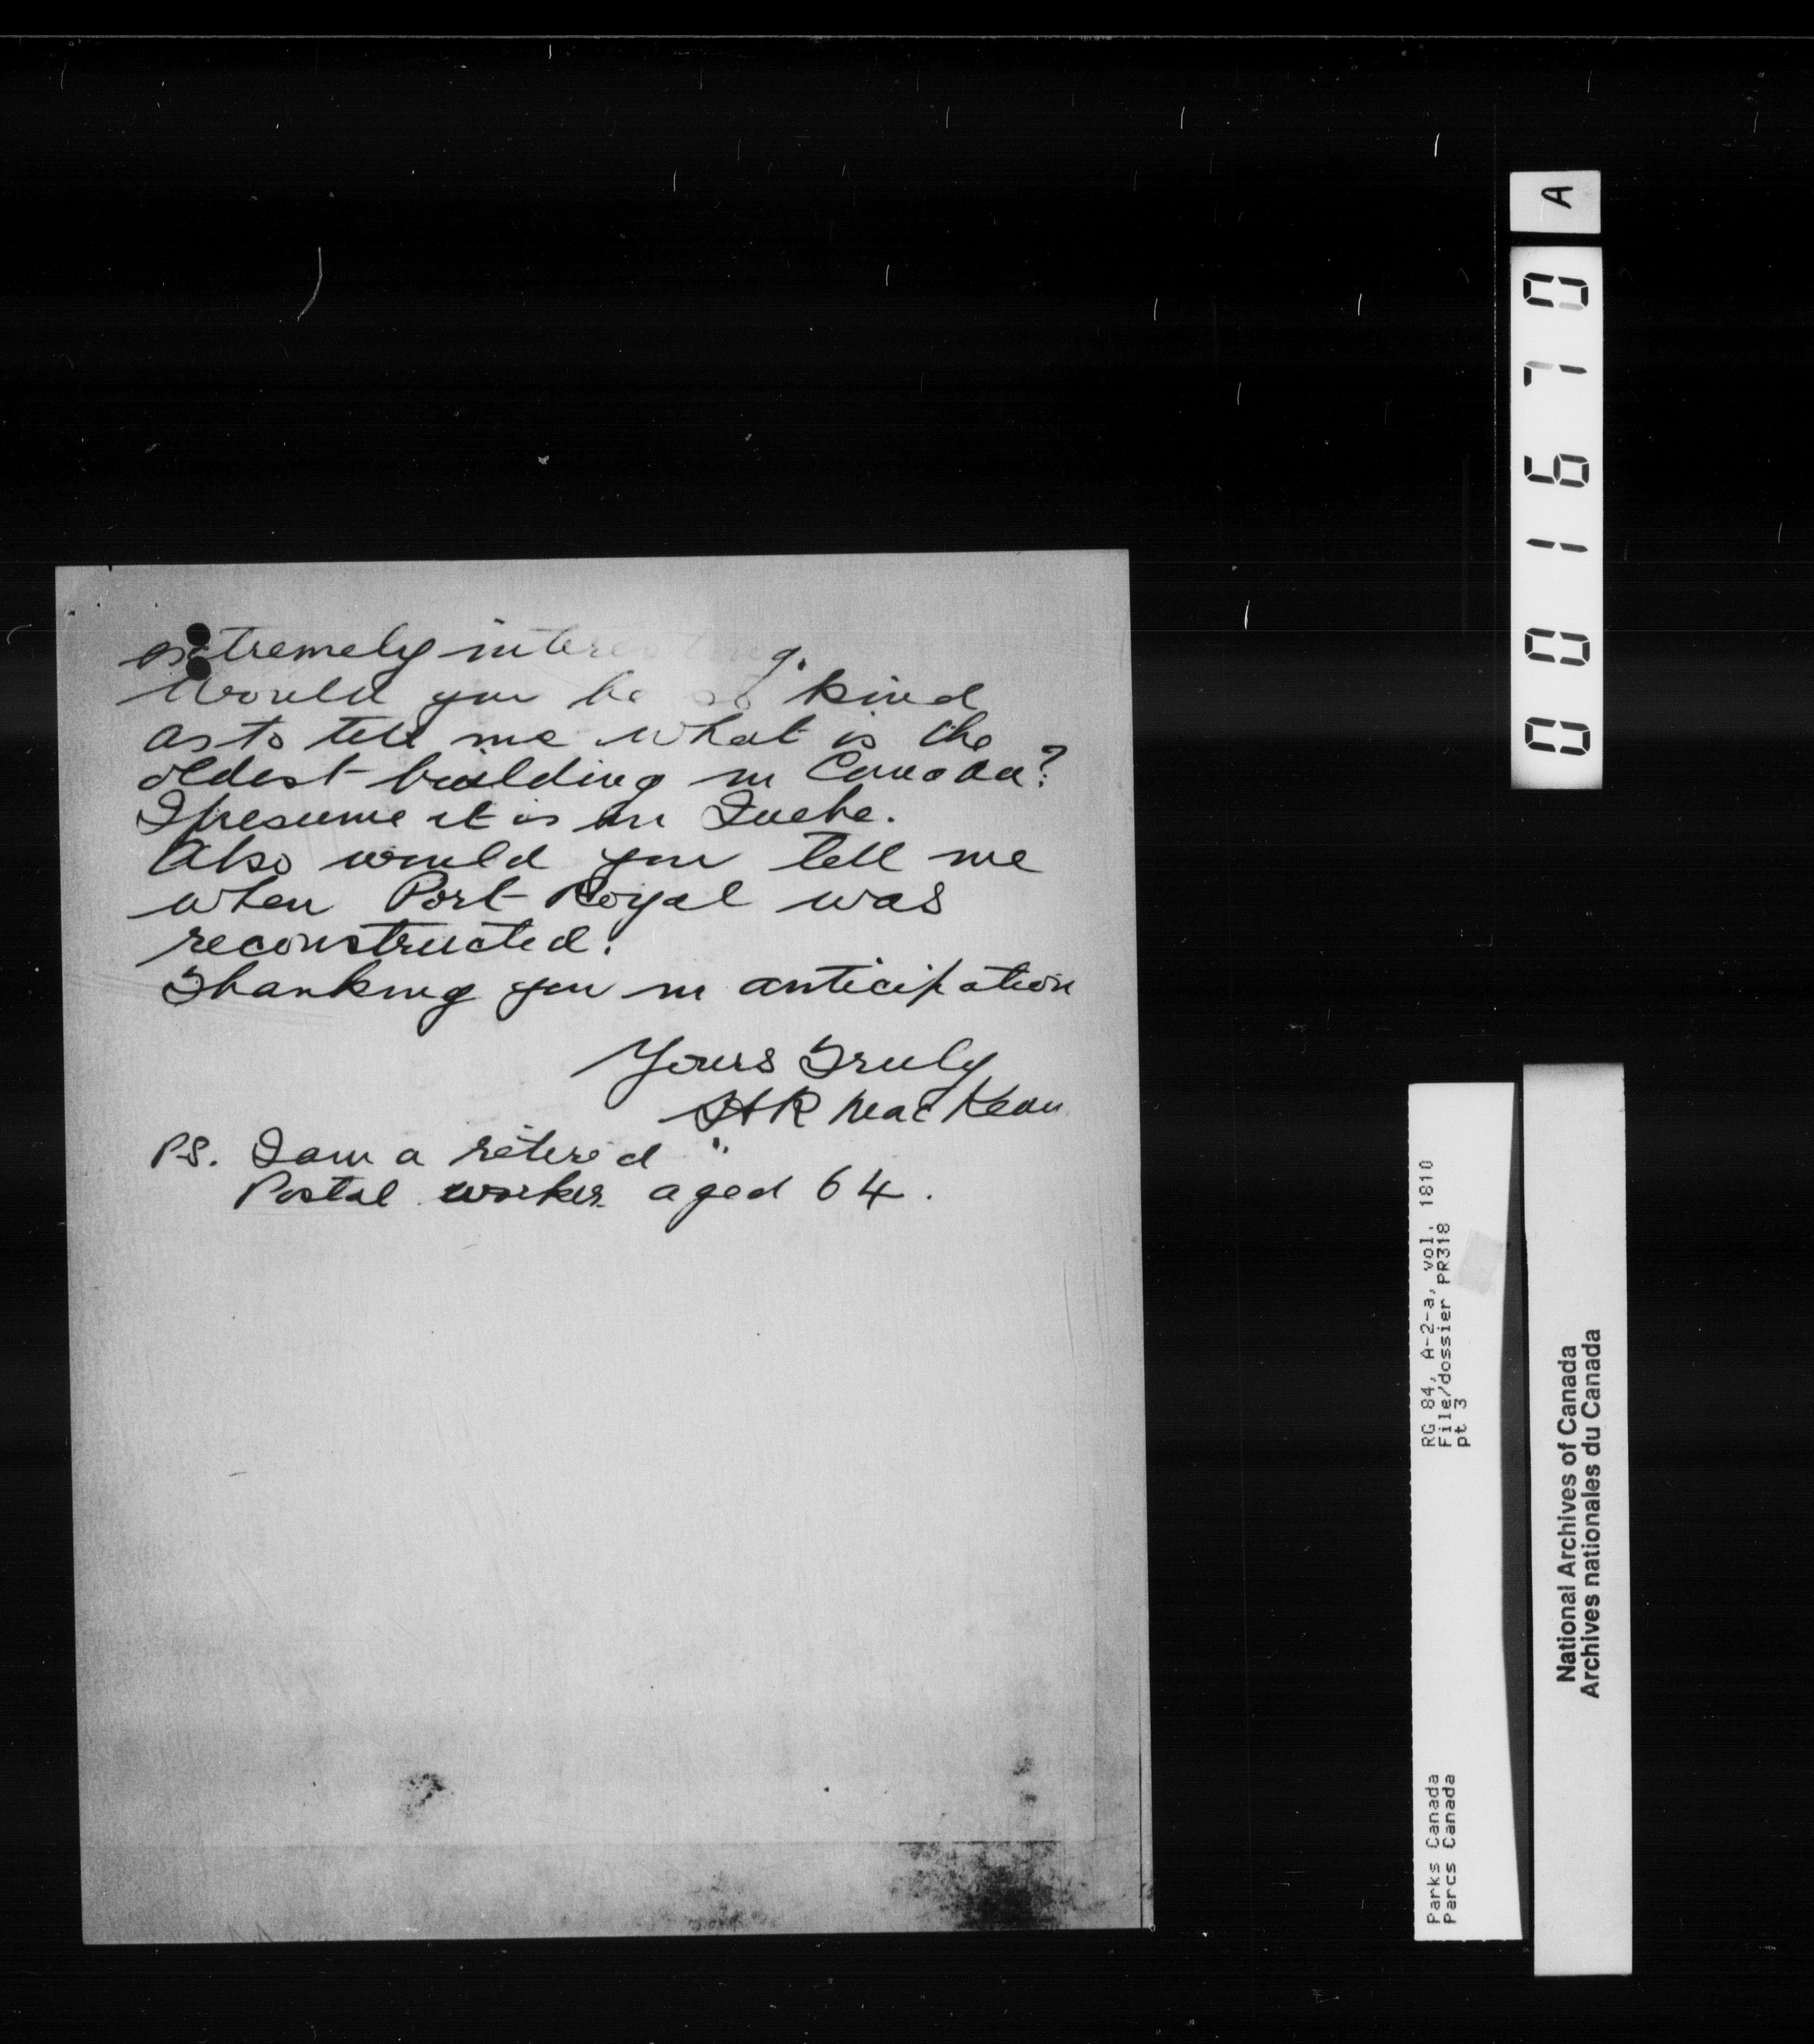 extremely interesting.
Would you be so kind
as to tell me what is the
oldest building in Canada?
I presume it is in Quebe.
Also would you tell me
when Port Royal was
reconstructed.
Thanking you in anticipation
Yours Truly
HR MacKean
PS. I am a retired
Postal worker aged 64.
A
001670
RG 84, A-2-a, vol. 1810
File/dossier PR318
pt 3
Parks Canada
Parcs Canada
National Archives of Canada
Archives nationales du Canada